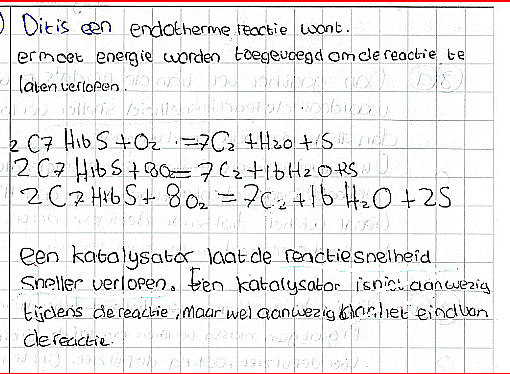 ) Dit is een endotherme reactie want.
er moet energie worden toegevoegd om de reactie te
laten verlopen.
2 C7 H16 S + O2 = 7C2 + H2O + S
2 C7 H16 S + 8O = 7 C2 + 16 H2O + 2S
2 C7 H16 S + 8 O2 = 7C2 + 16 H2O + 2S
Een katalysator laat de reactiesnelheid
sneller verlopen. Een katalysator is niet aanwezig
tijdens de reactie, maar wel aanwezig aan het eind van
de reactie.